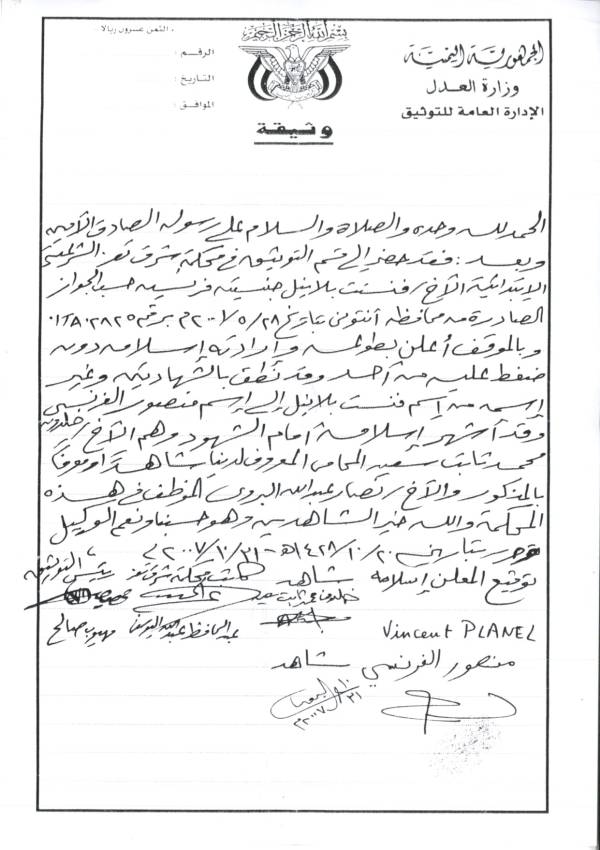 بسم الله الرحمن الرحيم
الجمهورية اليمنية
وزارة العدل
الإدارة العامة للتوثيق
الثمن عشرون ريالاً
الرقم :
التاريخ :
الموافق :
وثيقة
الحمد لله وحده والصلاة والسلام على رسوله الصادق الأمين
وبعد : فقد حضر إلى قسم التوثيق في محكمة شرق تعز
الابتدائية الأخ / فنسنت بلانيل جنسيته فرنسية حسب الجواز
الصادرة من محافظة بتاريخ ٢٨/٥/٢٠٠٧م برقم
وبالموقف أعلن بطوعه وإرادته إسلامه دون
ضغط عليه من أحد وقد نطق بالشهادتين وغير
إسمه من إسم فنسنت بلانيل إلى إسم منصور الفرنسي
وقد أشهر إسلامه أمام الشهود وهم الأخ / خلدون
محمد ثابت سعيد المحامي المعروف لدينا شاهداً ومعرفاً
بالمذكور والأخ / عبدالله الموظف في هذه
المحكمة والله خير الشاهدين وهو حسبنا ونعم الوكيل
حرر بتاريخ ٢٠/١٠/١٤٢٨هـ ٣١/١٠/٢٠٠٧م
توقيع المعلن إسلامه شاهد كاتب محكمة شرق تعز رئيس التوثيق
Vincent PLANEL
منصور الفرنسي شاهد